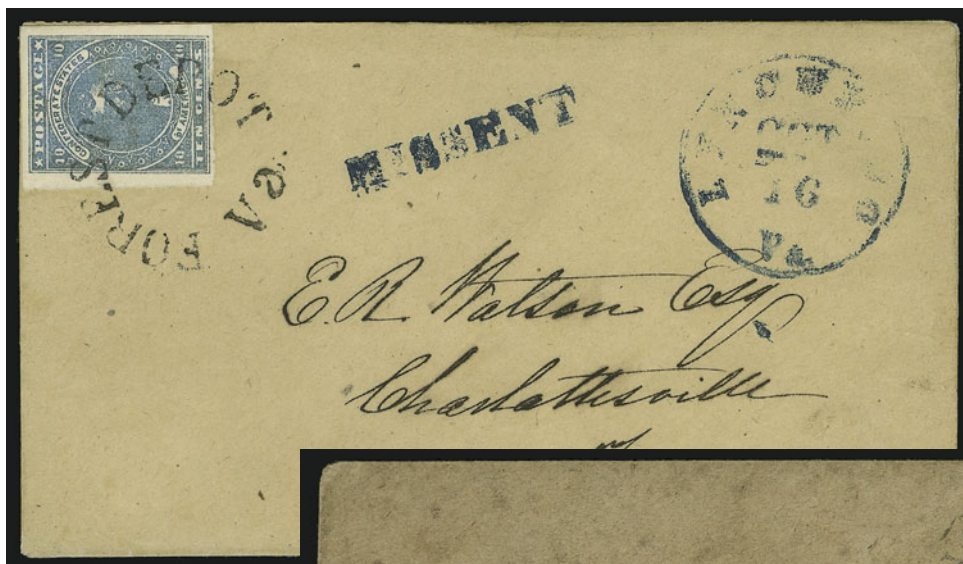 POSTAGE
CONFEDERATE STATES
OF AMERICA
TEN CENTS
10 10
10 10
FOREST DEPOT
Va.
MISSENT
LYNCHBURG
OCT
16
Va.
E. R. Watson Esq
Charlottesville